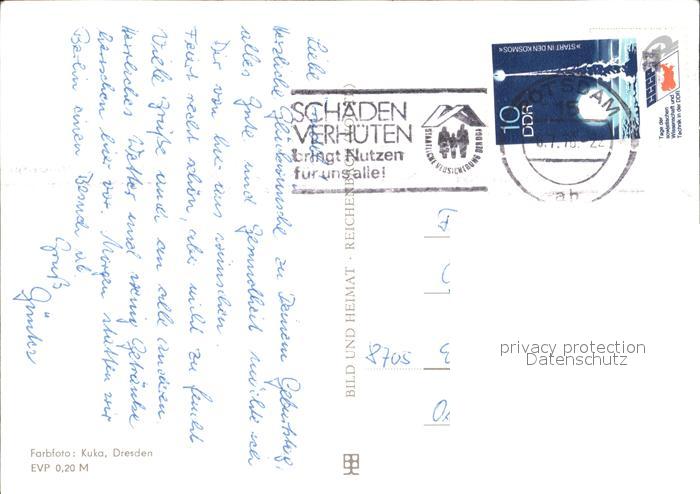 Liebe
Herzliche Glückwünsche zu Deinem Geburtstag,
alles Gute und Gesundheit möchte ich
Dir von hier aus wünschen.
Feiert recht schön, aber nicht zu feucht.
Viele Grüße auch an alle anderen.
Herrliches Wetter und wenig Getränke
herrschen hier vor. Morgen statten wir
Berlin einen Besuch ab.
Gruß
Günter
Farbfoto: Kuka, Dresden
EVP 0,20 M
BILD UND HEIMAT · REICHENB
SCHÄDEN
VERHÜTEN
bringt Nutzen
für uns alle!
STAATLICHE VERSICHERUNG DER DDR
»START IN DEN KOSMOS«
10
DDR
Tage der
sowjetischen
Wissenschaft und
Technik in der DDR
POTSDAM
15
ab
8705
privacy protection
Datenschutz